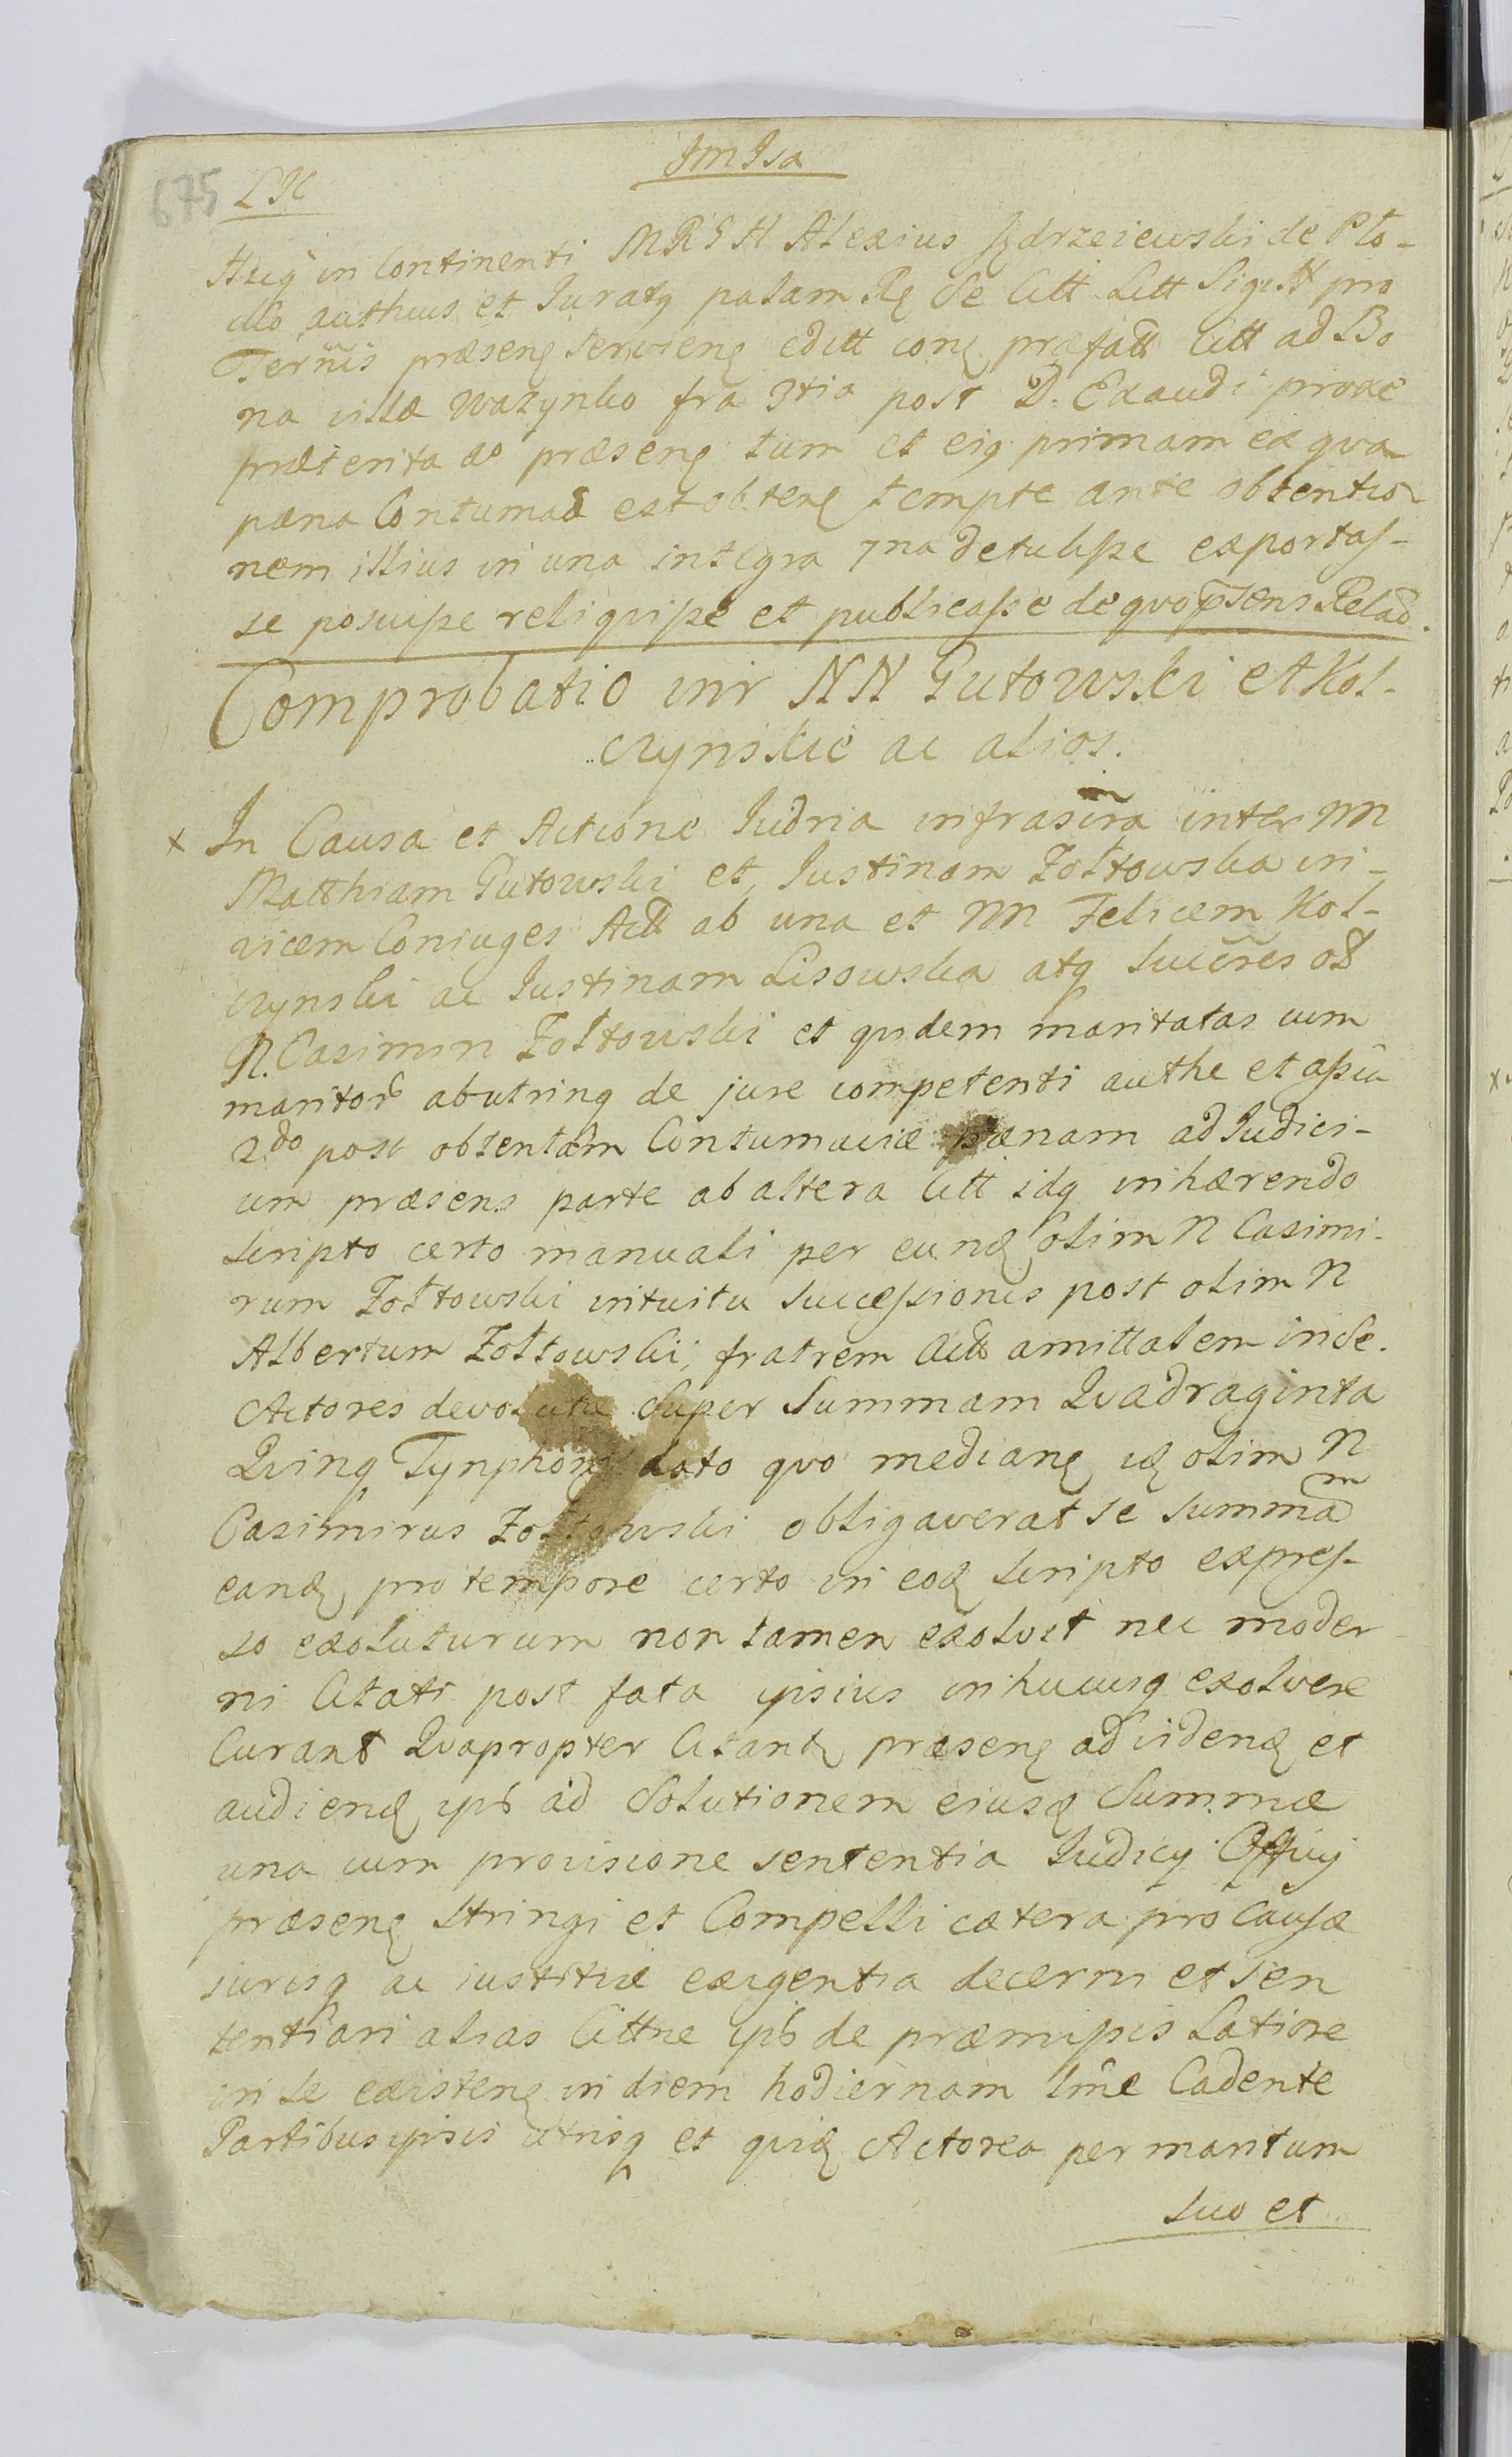 Im Isa
675 LIC
Huiq in Continenti MRSH Alexius Jędrzeiewski de Plo-
cko authcus et Juratq palam Rq se Citt Litt Sigitt pro
Termis præsenę servienę editt conę præfatt Citt ad Bo
na villæ Wazynko fra 3tia post D. Exaudi proxe
præterita ao præsenę tum et eiq primam ex qva
pæna Contumac est obtenę tempte ante obtentio
nem illius in una integra 7na detulisse exportas-
se posuisse reliqvisse et publicasse de qvo psens Relao.
Comprobatio inr NN Gutowski et Kol-
czynskie ac alios.
x In Causa et Actione Iudria infrascra inter MM
Matthiam Gutowski et Iustinam Zołtowska in-
vicem Coniuges Actt ab una et MM Felicem Kol-
czynski ac Iustinam Lisowska atq succres ol
N. Casimiri Zołtowski et qvidem maritatas cum
maritor ab utrinq de jure competenti authe et assia
2do post obtentam Contumaciæ pænam ad Iudici-
um præsens parte ab altera Citt idq inhærendo
scripto certo manuali per eundę olim N Casimi-
rum Zołtowski intuitu successionis post olim N
Albertum Zołtowski, fratrem Actt amittalem in se.
Actores devolutæ Super Summam Qvadraginta
Qvinq Tynphonę dato qvo medianę idę olim N
Casimirus Zołtowski obligaverat se summam
eandę pro tempore certo in eodę scripto expres-
so exoluturum non tamen exolvit nec moder
ni Citati post fata ipsius in hucusq exolvere
Curant Qvapropter Citantę præsenę ad videndę et
audiendę ips ad Solutionem eiusdę Summæ
una cum provisione sententia Iudicij Officij
præsenę stringi et Compelli cætera pro Causæ
jurisq ac iustitiæ exigentia decerni et sen
tentiari alias Cittne ips de præmissis Latiore
in se existenę in diem hodiernam lme Cadente
Partibus ipsis utrisq et qvidę Actorea per maritum
suo et